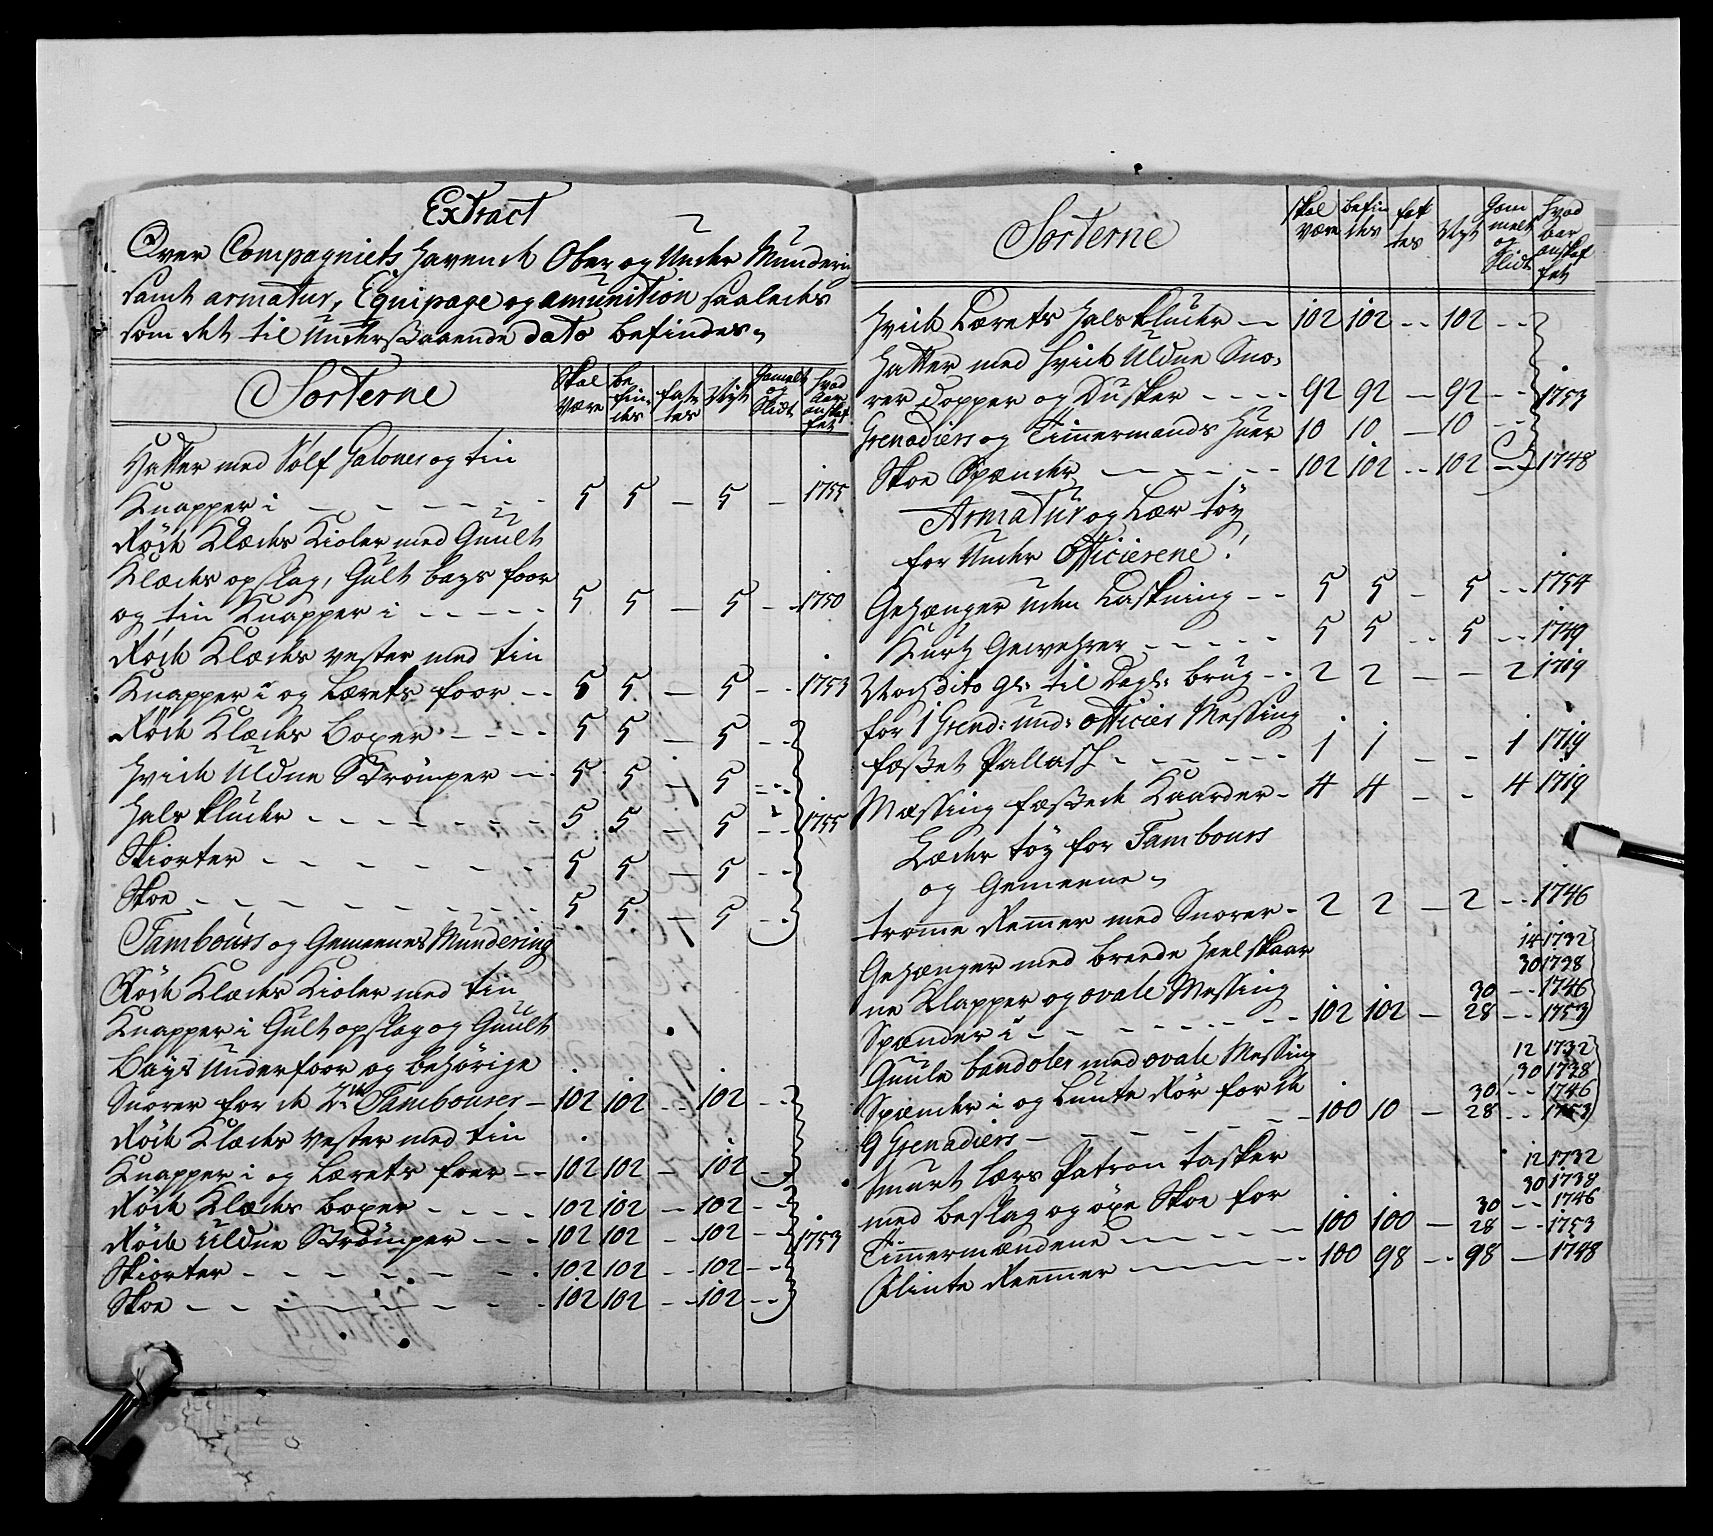 Extract
Over Compagniets havende Ober og Under Mundering
samt armatur, Equipage og amunition saaledes
som det til Underskaaende dato befindes
Sorterne Skal Være Be findes fattes Nyt Gamelt og Slidt hvad Aar anskaffet
Hatter med Sølf Galoner og tin
Knapper i - - - - - 5 5 - 5 - 1755
Røde Klædes Kioler med Guult
Klædes opslag, Gult bays foor
og tin Knapper i - - - - 5 5 - 5 - - 1750
Røde Klædes vester med tin
Knapper i og Lærets foor - - 5 5 - 5 - - 1753
Røde Klædes Boxer - - - - 5 5 - 5 - -
Hvide Uldne Strømper - - 5 5 - 5 - - -
Halsklude - - - - - - - 5 5 - 5 - - 1755
Skiorter - - - - - - - 5 5 - 5 - -
Skoe - - - - - - - - 5 5 - 5 - -
Tambours og Gemeenes Mundering
Røde Klædes Kioler med tin
Knapper i Gult opslag og Guult
Bays Underfoor og behørige
Snorer for de 2de Tambourer - 102 102 - - 102 - -
Røde Klædes vester med tin
Knapper i og Lærets foer - - 102 102 - 102 - -
Røde Klædes boxer - - - - 102 102 - 102 - -
Røde Uldne Strømper - - - 102 102 - - 102 - - 1753
Skiorter - - - - - - - 102 102 - - 102 - -
Skoe - - - - - - - - 102 102 - - 102 - -
Sorterne Skal være befindes fattes Nyt Gammelt og Slidt hvad aar anskaffet
Hvide Lærets Halsklude - - 102 102 - - 102 - -
Hatter med hvide Uldne Sno-
rer dopper og Dusker - - - - 92 92 - 92 - - 1753
Grenadiers og Timmermands Huer 10 10 - 10 - -
Skoe Spænder - - - - - - 102 102 - - 102 - - 1748
Armatur og Lær tøy
for Under Officierene!
Gehænger uden Laskning - - 5 5 - 5 - - 1754
Kurtz Gewehrer - - - - 5 5 - - 5 - - 1749
Noch dito gl: til Dagl: brug - - 2 2 - - 2 1719
for 1 Grend: und: officier Messing
fæstet Pallash - - - - - - 1 1 - - 1 1719
Messing fæstede Kaarder - 4 4 - - 4 1719
Læder tøy for Tambours
og Gemeene
tromme Remer med Snorer - 2 2 - 2 - - 1746
Gehænger med breede heelskaar 14 1732
ne Klapper og ovale Messing 30 1738
Spænder i - - - - - - - 102 102 - 30 - - 1746
28 - - 1753
Guule bandoler med ovale Messing 12 1732
Spænder i og Lunte Rør for de 30 1738
9 Grenadiers - - - - - - 100 10 - 30 - - 1746
28 - - 1753
Smurt lærs Patron tasker 12 1732
med beslag og øxe Skoe for 30 1738
Timmermændene - - - - - 100 100 - 30 - - 1746
28 - - 1753
Flinte Remer - - - - - - 100 98 - - 98 - 1748